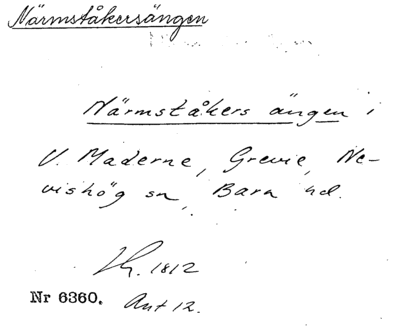 Närmståkersängen
Närmståkers ängen i
V. Maderne, Grevie, Ne-
vishög sn, Bara hd.
Lh. 1812
Nr 6360. Akt 12.